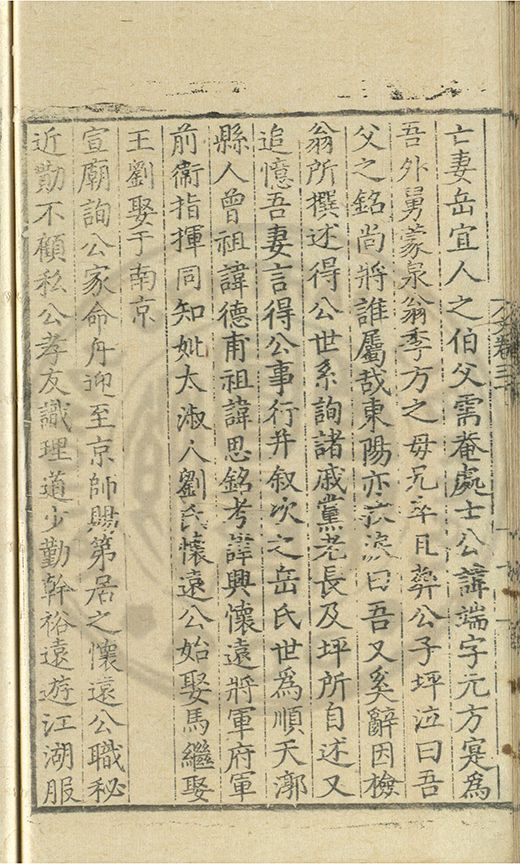 亡妻岳宜人之伯父需菴處士公諱端字元方寔為
吾外舅蒙泉翁季方之母兄卒且葬公子坪泣曰吾
父之銘尚將誰屬哉東陽亦泣曰吾又奚辭因檢
翁所撰述得公世系詢諸戚黨老長及坪所自述又
追憶吾妻言得公事行并叙次之岳氏世為順天漷
縣人曾祖諱德甫祖諱思銘考諱興懷遠將軍府軍
前衞指揮同知妣太淑人劉氏懷遠公始娶馬繼娶
王劉娶于南京
宣廟詢公家命舟迎至京師賜第居之懷遠公職秘
近勤不顧私公孝友識理道少勤幹裕遠遊江湖服